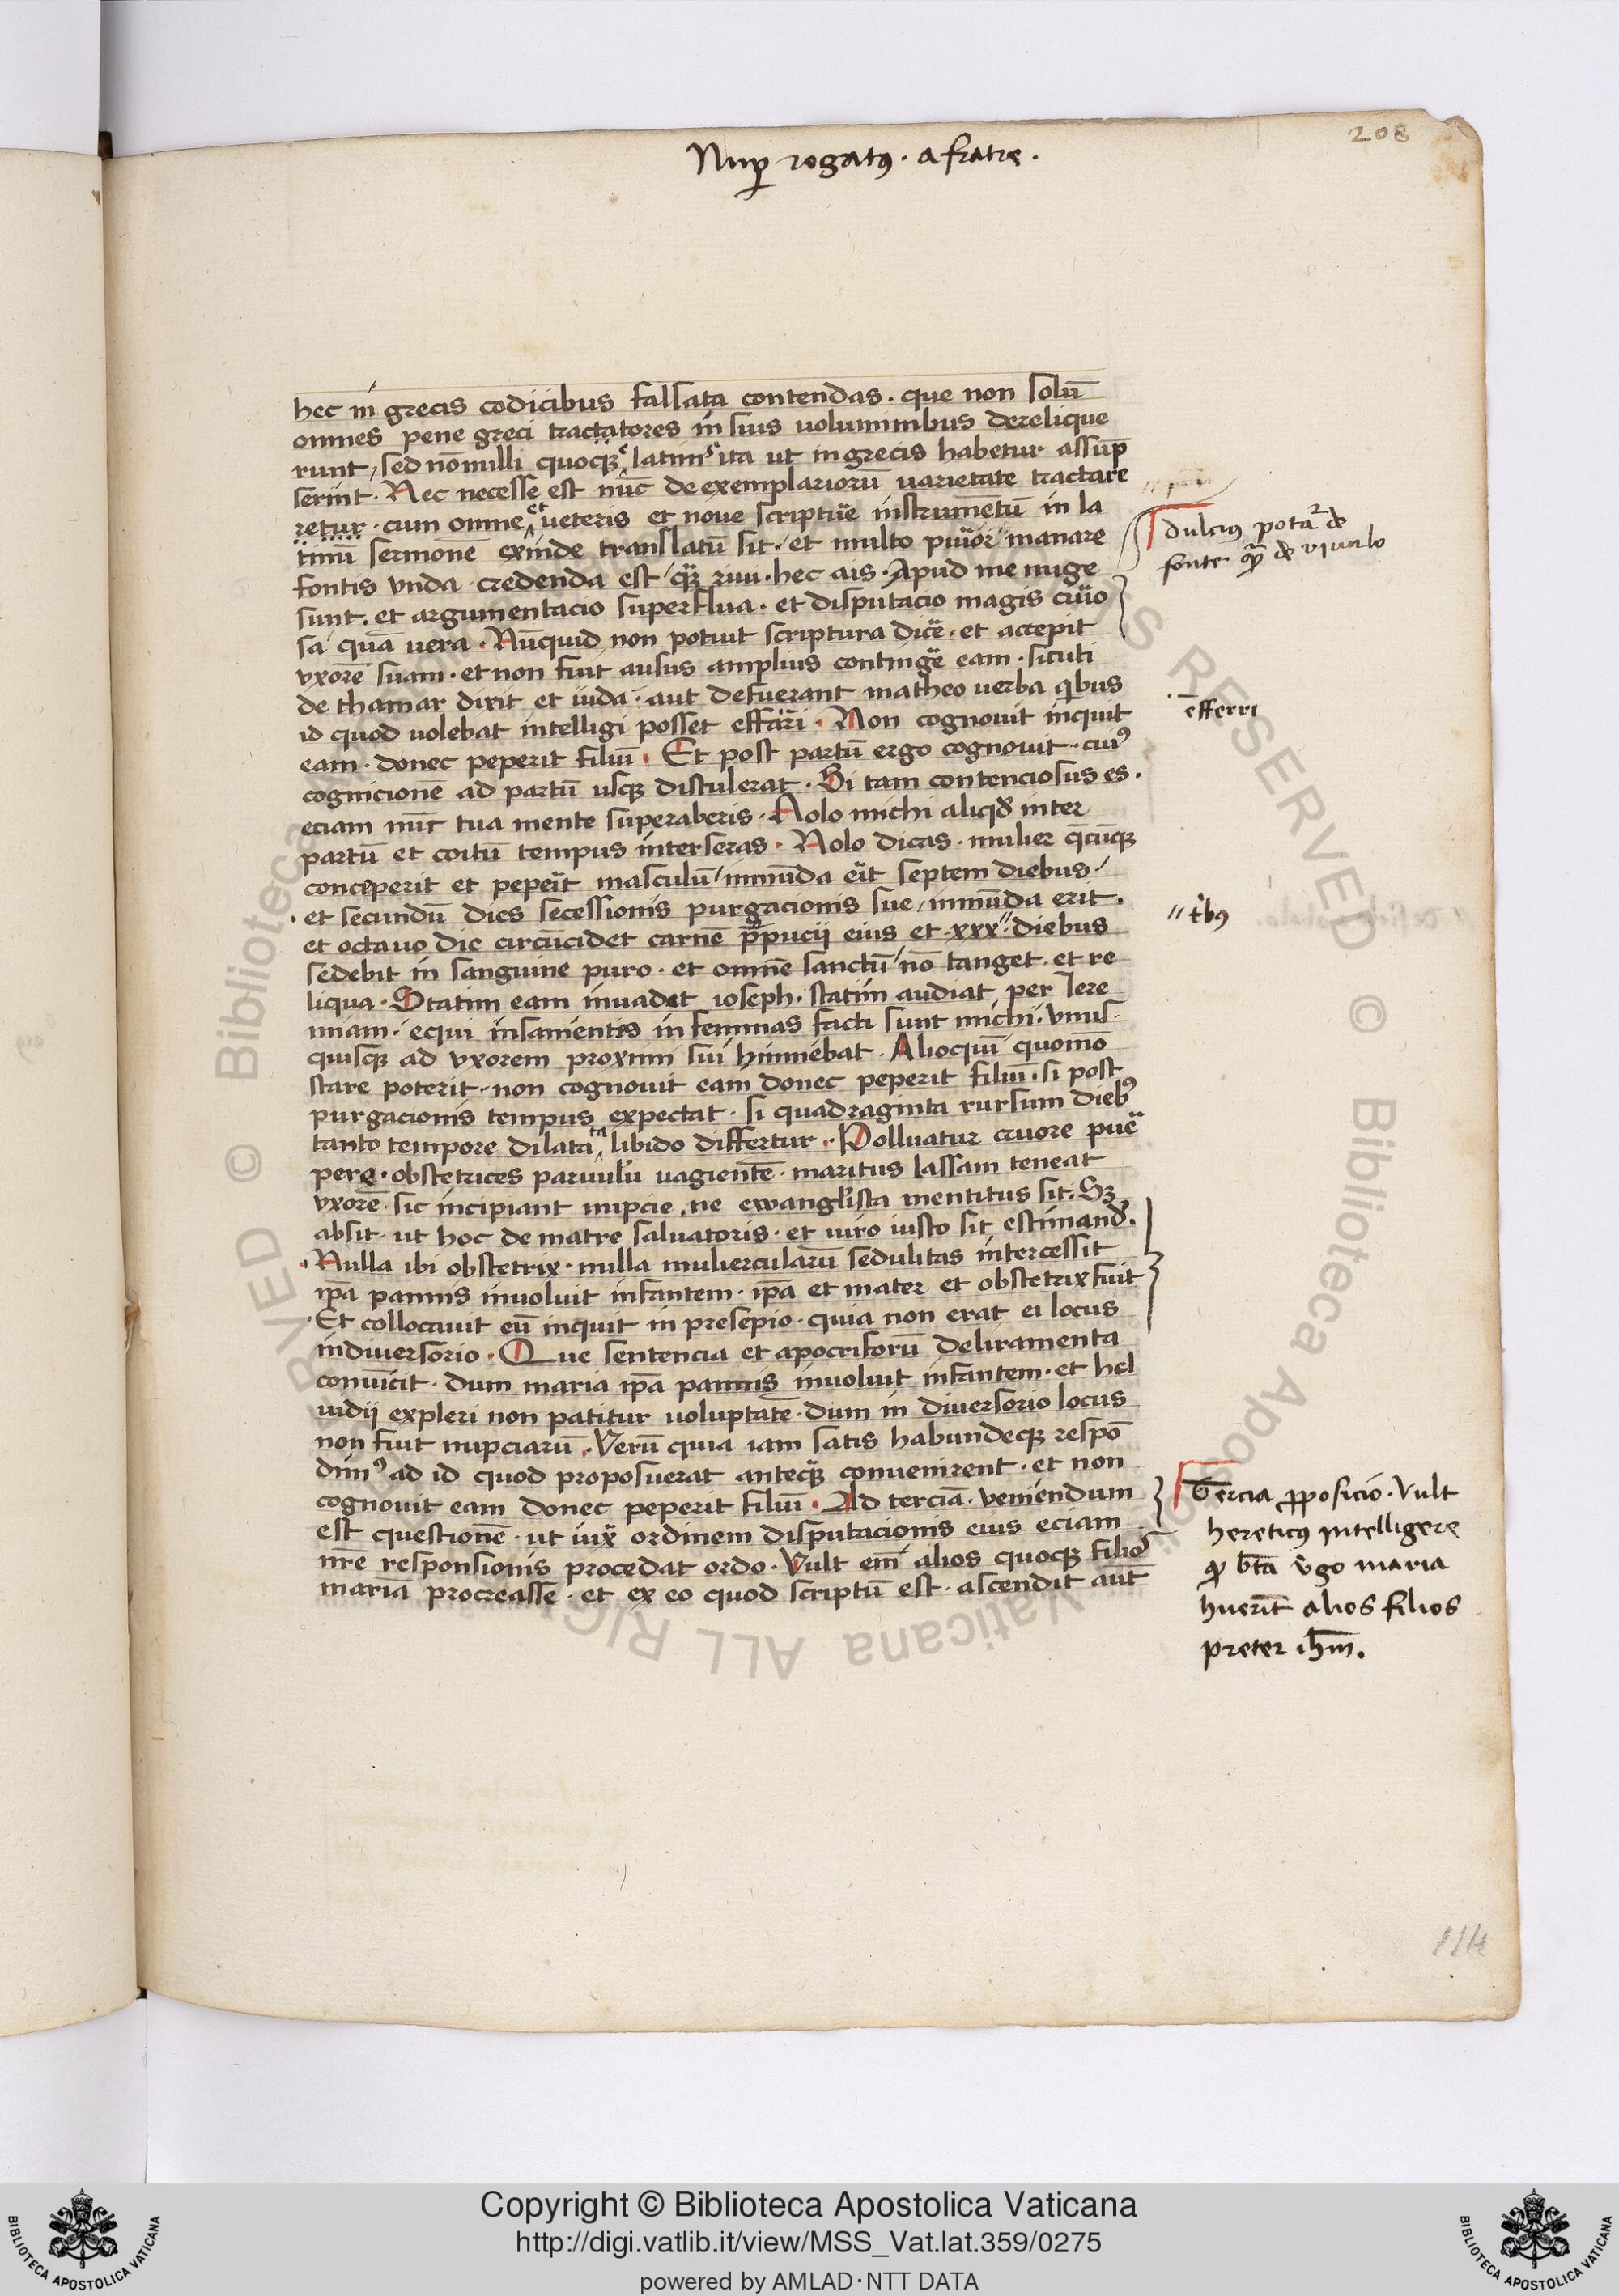 208
Nup̱ rogatꝰ · a fratre ·
hec in grecis codicibus falsata contendas · que non solū
omnes pene greci tractatores in suis uoluminibus derelique
runt / sed nōnulli quoqꝫ latini ita ut in grecis habetur assūp
serint · Nec necesse est nūc de exemplariorū uarietate tractare
retur · cum omne et ueteris et noue scripture instrumētū in la
tinū sermonē exinde translatū sit · et multo purior manare
fontis vnda credenda est / qꝫ riui · hec ais · Apud me nuge
sunt · et argumentacio superflua · et disputacio magis curio
sa quā uera · Nūquid non potuit scriptura dicere · et accepit
vxorē suam · et non fuit ausus amplius contingere eam · sicuti
de thamar dixit et iuda · aut defuerant matheo uerba qibus
id quod uolebat intelligi posset effari · Non cognouit inquit
eam · donec peperit filiū · Et post partū ergo cognouit · cuiꝰ
cognicionē ad partū usqꝫ distulerat · Si tam contenciosus es ·
eciam nūc tua mente superaberis · Nolo michi aliqd inter
partū et coitū tempus interseras · Nolo dicas · mulier q̄cūqꝫ
conceperit et peperit masculū / inmūda erit septem diebus /
et secundū dies secessionis purgacionis sue / inmūda erit ·
et octauo die circūcidet carnē p̄pucii eius et · xxx · diebus
sedebit in sanguine puro · et omnē sanctū / nō tanget · et re
liqua · Statim eam inuadat ioseph · statim audiat per Iere
miam · equi insanientes in feminas facti sunt michi · vnus
quisqꝫ ad vxorem proximi sui hinniebat · Alioquī quomō
stare poterit · non cognouit eam donec peperit filiū · si post
purgacionis tempus expectat · si quadraginta rursum diebꝰ
tanto tempore dilata libido differtur · Polluatur cruore puer
pere · obstetrices paruulū uagientē · maritus lassam teneat
vxorē · sic incipiant nupcie · ne ewanglista mentitus sit · Sꝫ
absit · ut hoc de matre saluatoris · et uiro iusto sit estimand ·
Nulla ibi obstetrix · nulla muliercularū sedulitas intercessit
ip̄a pannis inuoluit infantem · ip̄a et mater et obstetrix fuit
Et collocauit eū inquit in presepio · quia non erat ei locus
in diuersorio · Que sentencia et apocriforū deliramenta
conuīcit · dum maria ip̄a pannis inuoluit infantem · et hel
uidii expleri non patitur uoluptatē · dum in diuersorio locus
non fuit nupciarū · Verū quia iam satis habundeqꝫ respō
dimꝰ ad id quod proposuerat anteqꝫ conuenirent · et non
cognouit eam donec peperit filiū · Ad terciā · veniendum
est questionē · ut iuxͣ ordinem disputacionis eius eciam
nr̄e responsionis procedat ordo · Vult em̄ alios quoqꝫ filios
mariā procreasse · et ex eo quod scriptū est · ascendit aut̄
Dulcius potar̄ de
fonte qͣꝫ de riuulo
efferri
t'bꝰ
Tercia ꝓposicio · Vult
hereticꝰ intelligere
qꝫ bt̄a v̄go maria
huerīt alios filios
preter ihm̄ ·
114
Copyright © Biblioteca Apostolica Vaticana
http://digi.vatlib.it/view/MSS_Vat.lat.359/0275
powered by AMLAD·NTT DATA
BIBLIOTECA APOSTOLICA VATICANA
BIBLIOTECA APOSTOLICA VATICANA